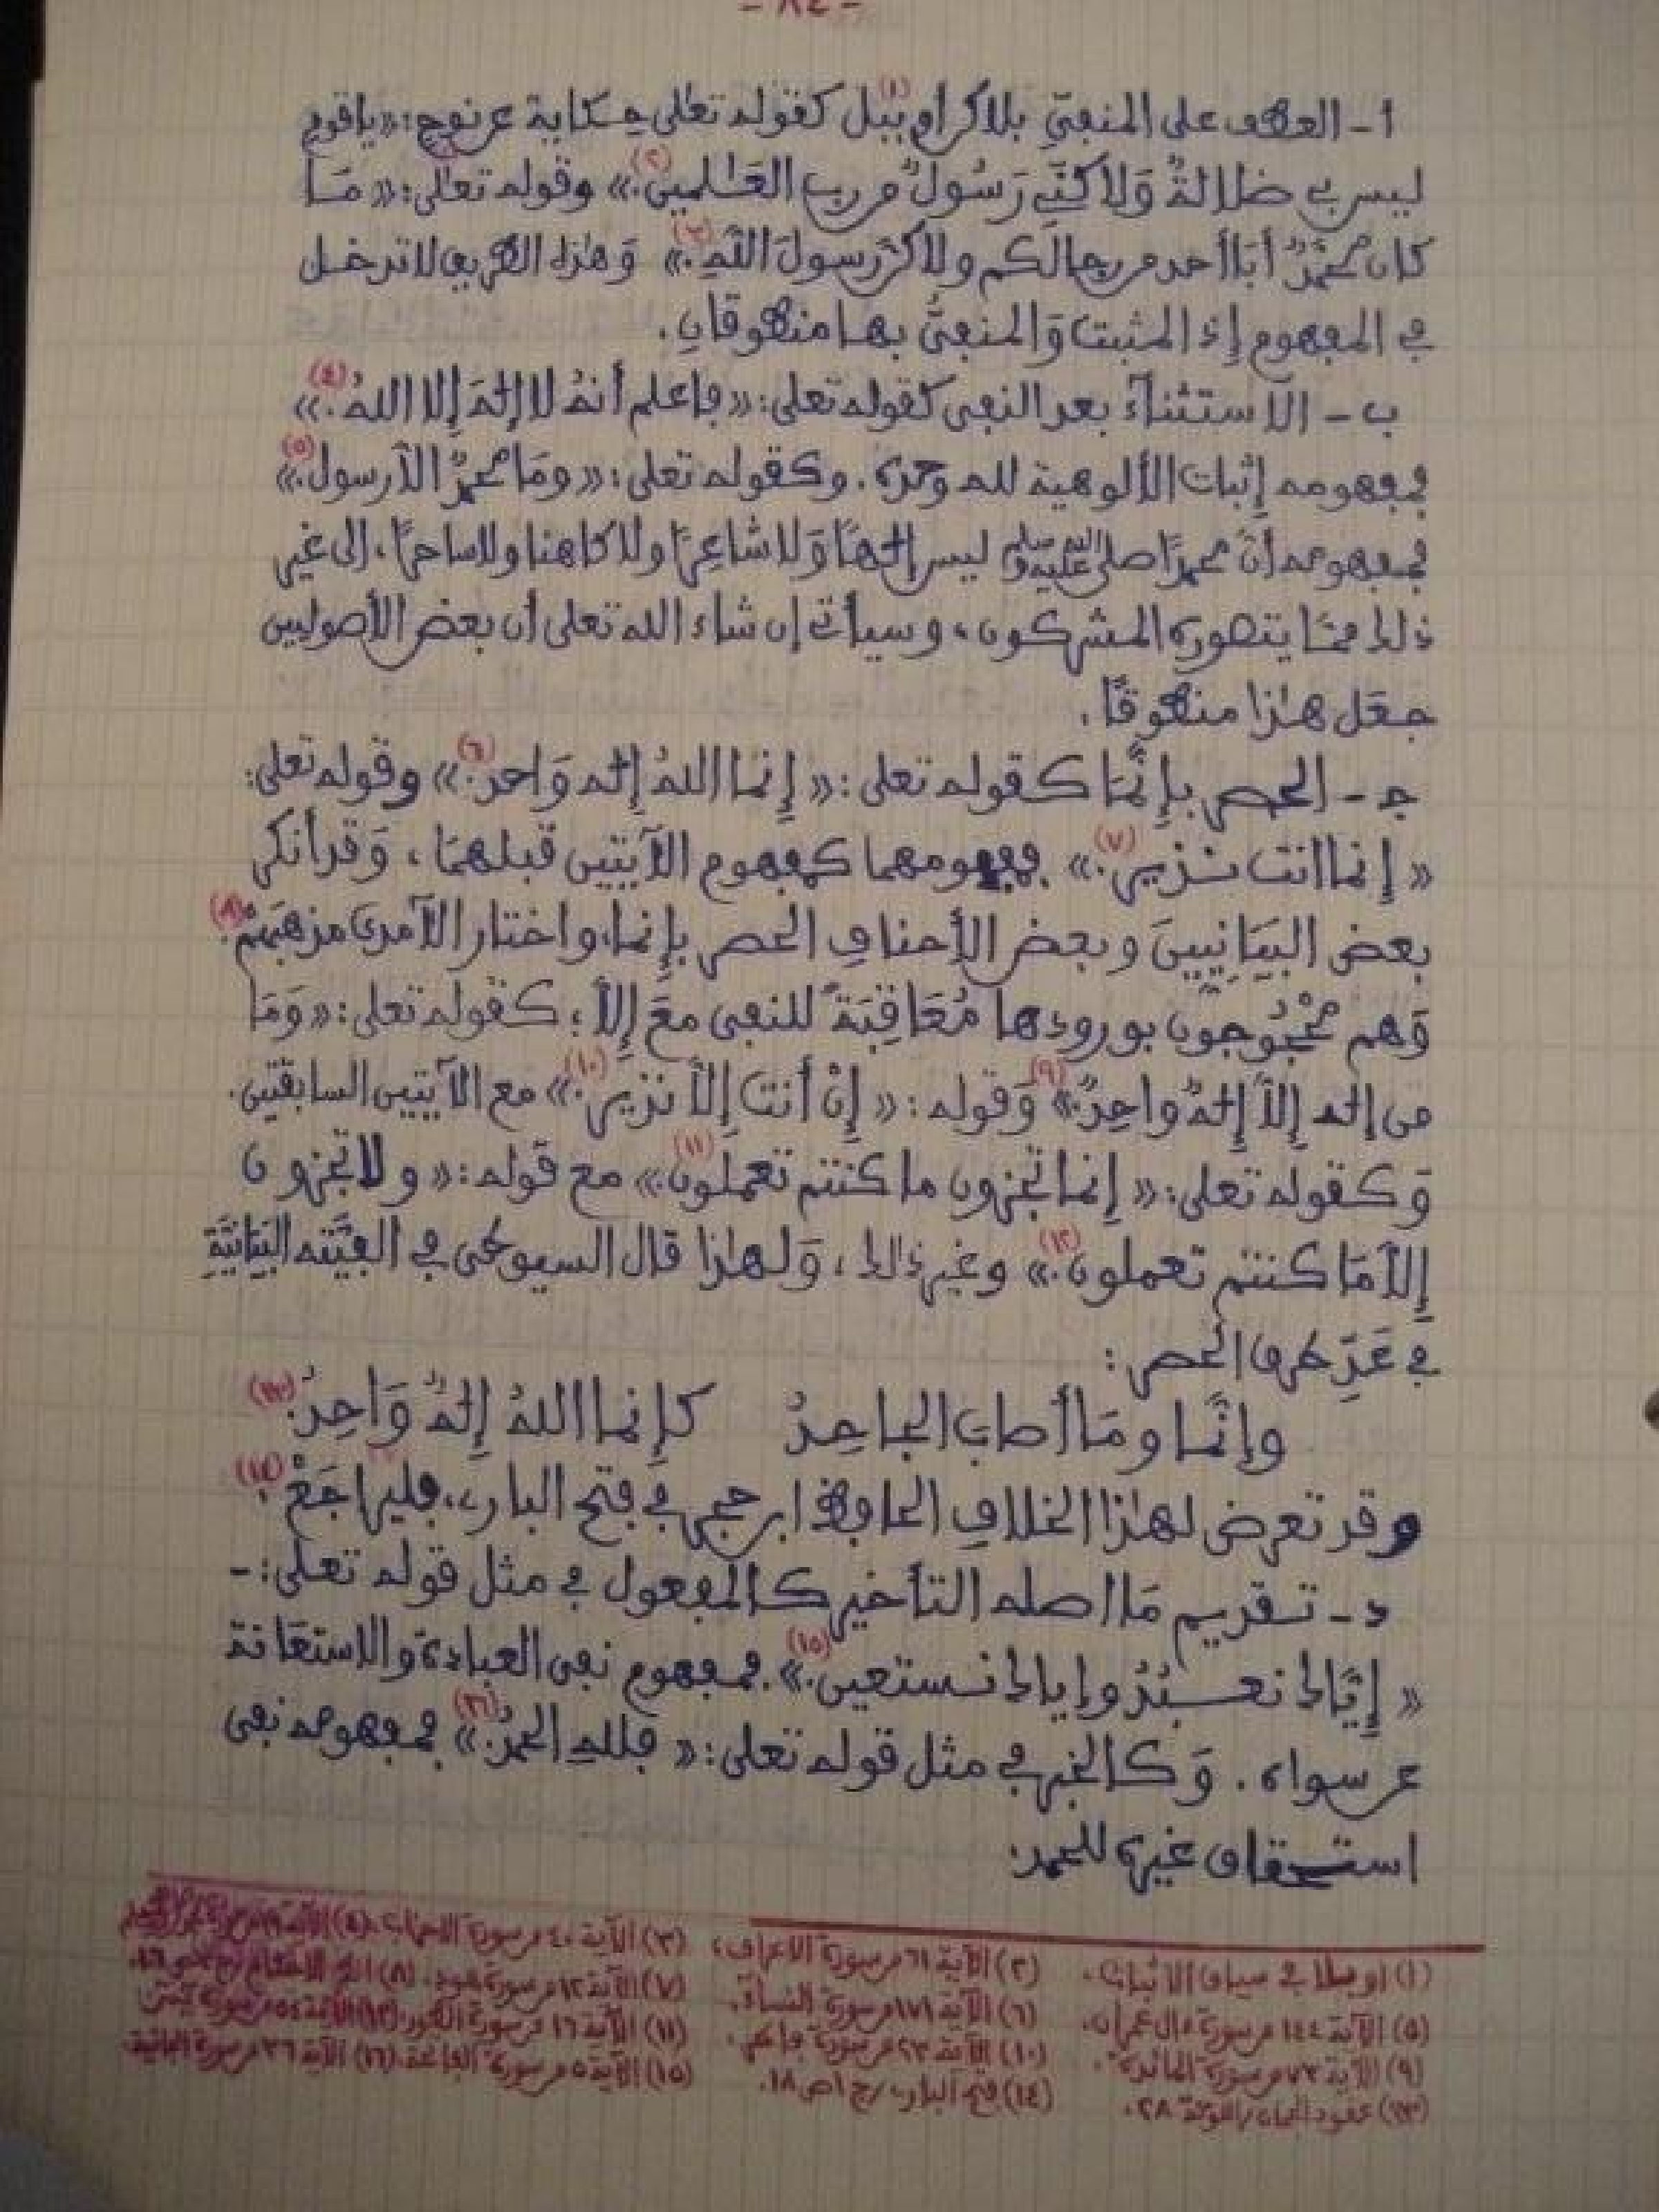 - ٨٤ -
أ - العطف على المنفيّ بلاكن أو ببل (١) كقوله تعلى حكاية عن نوح: «ياقوم
ليس بي ضلالةٌ وَلاكنّي رَسُولٌ من رب العَـٰلمين (٢).» وقوله تعلى: «مَا
كان محمّدٌ أبَا أحد من رجالكم ولاكن رّسولَ اللهِ (٣).» وَهٰذه الطريق لا تدخل
في المفهوم إذ المثبت وَالمنفيُّ بها منطوقان.
ب - الاستثناء بعد النفي كقوله تعلى: «فاعلم أنهُ لا إلٰهَ إلا اللهُ (٤).»
فمفهومه إثبات الألوهية لله وحده. وكقوله تعلى: «ومَا محمدٌ الاّ رسول (٥).»
فمفهومه أنّ محمدًا صلى الله عليه وسلم ليس إلٰهًا وَلا شاعِرًا ولا كاهنا ولا ساحرًا، إلى غير
ذلك ممّا يتصوره المشركون، وسيأتي إن شاء الله تعلى أن بعض الأصوليين
جعَل هٰذا منطوقًا.
ج - الحصر بإنَّمَا كقوله تعلى: «إنما اللهُ إلٰه وَاحد (٦).» وقوله تعلى:
«إنما انت نذير (٧).» فمفهومهما كمفهوم الآيتين قبلهمَا، وَقد أنكر
بعض البيَانِيينَ وبعض الأحناف الحصر بإنما، واختار الآمدي مذهبَهمْ (٨).
وَهم محْجُوجون بورودها مُعَاقِبَةً للنفي معَ إلاّ؛ كقوله تعلى: «وَمَا
من إلٰه إلاّ إلٰهٌ واحِدٌ (٩).» وَقوله: «إنْ أنت إلاّ نذير (١٠).» مع الآيتين السابقتين.
وَكقوله تعلى: «إنما تجزون ما كنتم تعملون (١١).» مع قوله: «ولا تجزون
إلاّ مَا كنتم تعملون (١٢).» وغير ذالك، وَلهٰذا قال السيوطي في ألفيّته البيَانيَّةِ
في عَدِّ طرق الحصر:
وإنَّما ومَا أصاب الجاحِدُ كإنما اللهُ إلٰهٌ وَاحِدُ (١٣).
وقد تعرض لهٰذا الخلاف الحافظ ابن حجر في فتح الباري، فليراجَعْ (١٤).
د - تقديم مَا اصله التأخير كالمفعول في مثل قوله تعلى: -
«إيّاك نعـبُدُ وإياك نستعين (١٥).» فمفهوم نفي العبادة والاستعَانة
عن سواه. وَكالخبر في مثل قوله تعلى: «فللهِ الحمدُ (١٦).» فمفهومه نفي
استحقاق غيره للحمد.
(١) او بلا في سياق الاثبات. (٢) الآية ٦١ من سورة الاعراف، (٣) الآية ٤٠ من سورة الاحزاب. (٤) الآية ١٩ من سورة
(٥) الآية ١٤٤ من سورة ءال عمران. (٦) الآية ١٧١ من سورة النساء. (٧) الآية ١٢ من سورة هود. (٨)
(٩) الآية ٧٣ من سورة المائدة. (١٠) الآية ٢٣ من سورة فاطر. (١١) الآية ١٦ من سورة الطور. (١٢) الآية ٥٤ من سورة يس
(١٣) عقود الجمان/اللوحة ٢٨. (١٤) فتح الباري/ج ١ ص ١٨. (١٥) الآية ٥ من سورة الفاتحة. (١٦) الآية ٣٦ من سورة الجاثية.